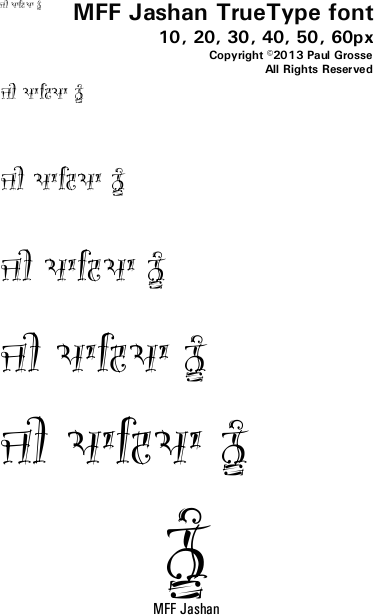 ਜੀ ਆਇਆ ਨੂੰ
MFF Jashan TrueType font
10, 20, 30, 40, 50, 60px
Copyright ©2013 Paul Grosse
All Rights Reserved
ਜੀ ਆਇਆ ਨੂੰ
ਜੀ ਆਇਆ ਨੂੰ
ਜੀ ਆਇਆ ਨੂੰ
ਜੀ ਆਇਆ ਨੂੰ
ਜੀ ਆਇਆ ਨੂੰ
ਨੂੰ
MFF Jashan